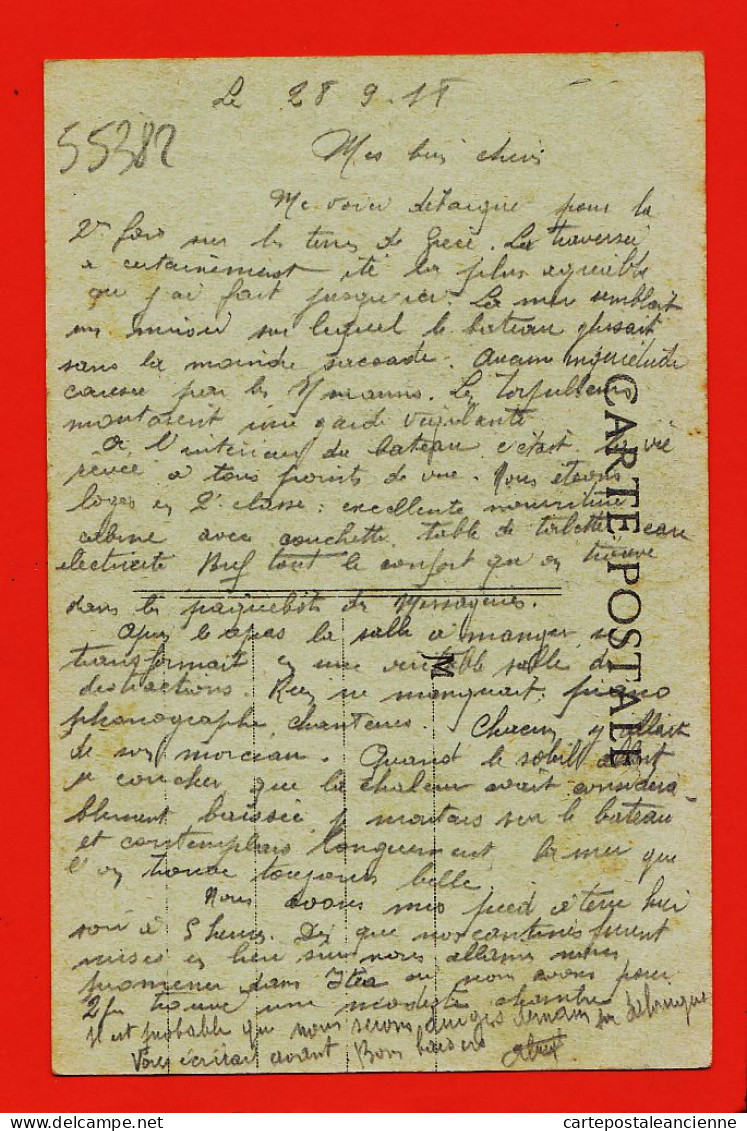 Le 28 9. 18
55382
Mes bien chers
Me voici débarqué pour la
2e fois sur les terres de Grèce. La traversée
a certainement été la plus agréable
que j'ai fait jusqu'ici. La mer semblait
un miroir sur lequel le bateau glissait
sans la moindre saccade. Aucune inquiétude
causée par les s/marins. Les torpilleurs
montaient une garde vigilante
A l'intérieur du bateau c'était la vie
rêvée à tous points de vue. Nous étions
logés en 2e classe : excellente nourriture
cabine avec couchette, table de toilette, eau
électricité Bref tout le confort qu'on trouve
dans les paquebots des Messageries.
Après le repas la salle à manger se
transformait en une véritable salle de
distractions. Rien ne manquait : piano
phonographe, chanteurs. Chacun y allait
de son morceau. Quand le soleil allait
se coucher, que la chaleur avait considéra-
blement baissée je montais sur le bateau
et contemplais longuement la mer que
l'on trouve toujours belle.
Nous avons mis pied à terre hier
soir à 5 heures. Dès que nos cantines furent
mises en lieu sur nous allâmes nous
promener dans Itéa où nous avons pour
2 fr trouvé une modeste chambre
Il est probable que nous serons dirigés demain sur
Vous écrirai avant Bons baisers
CARTE POSTALE
M
delcampe.net
cartepostaleancienne